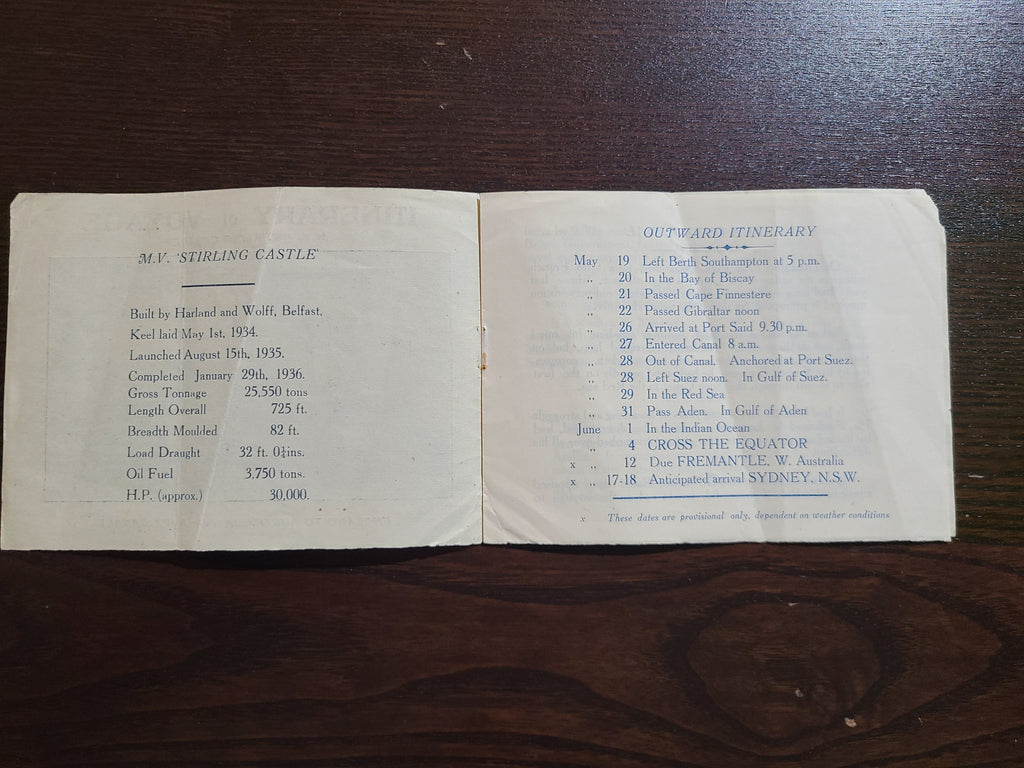 M.V. 'STIRLING CASTLE'
Built by Harland and Wolff, Belfast,
Keel laid May 1st, 1934.
Launched August 15th, 1935.
Completed January 29th, 1936.
Gross Tonnage 25,550 tons
Length Overall 725 ft.
Breadth Moulded 82 ft.
Load Draught 32 ft. 0¾ins.
Oil Fuel 3,750 tons.
H.P. (approx.) 30,000.
OUTWARD ITINERARY
May 19 Left Berth Southampton at 5 p.m.
„ 20 In the Bay of Biscay
„ 21 Passed Cape Finnestere
„ 22 Passed Gibraltar noon
„ 26 Arrived at Port Said 9.30 p.m.
„ 27 Entered Canal 8 a.m.
„ 28 Out of Canal. Anchored at Port Suez.
„ 28 Left Suez noon. In Gulf of Suez.
„ 29 In the Red Sea
„ 31 Pass Aden. In Gulf of Aden
June 1 In the Indian Ocean
„ 4 CROSS THE EQUATOR
x „ 12 Due FREMANTLE, W. Australia
x „ 17-18 Anticipated arrival SYDNEY, N.S.W.
x These dates are provisional only, dependent on weather conditions